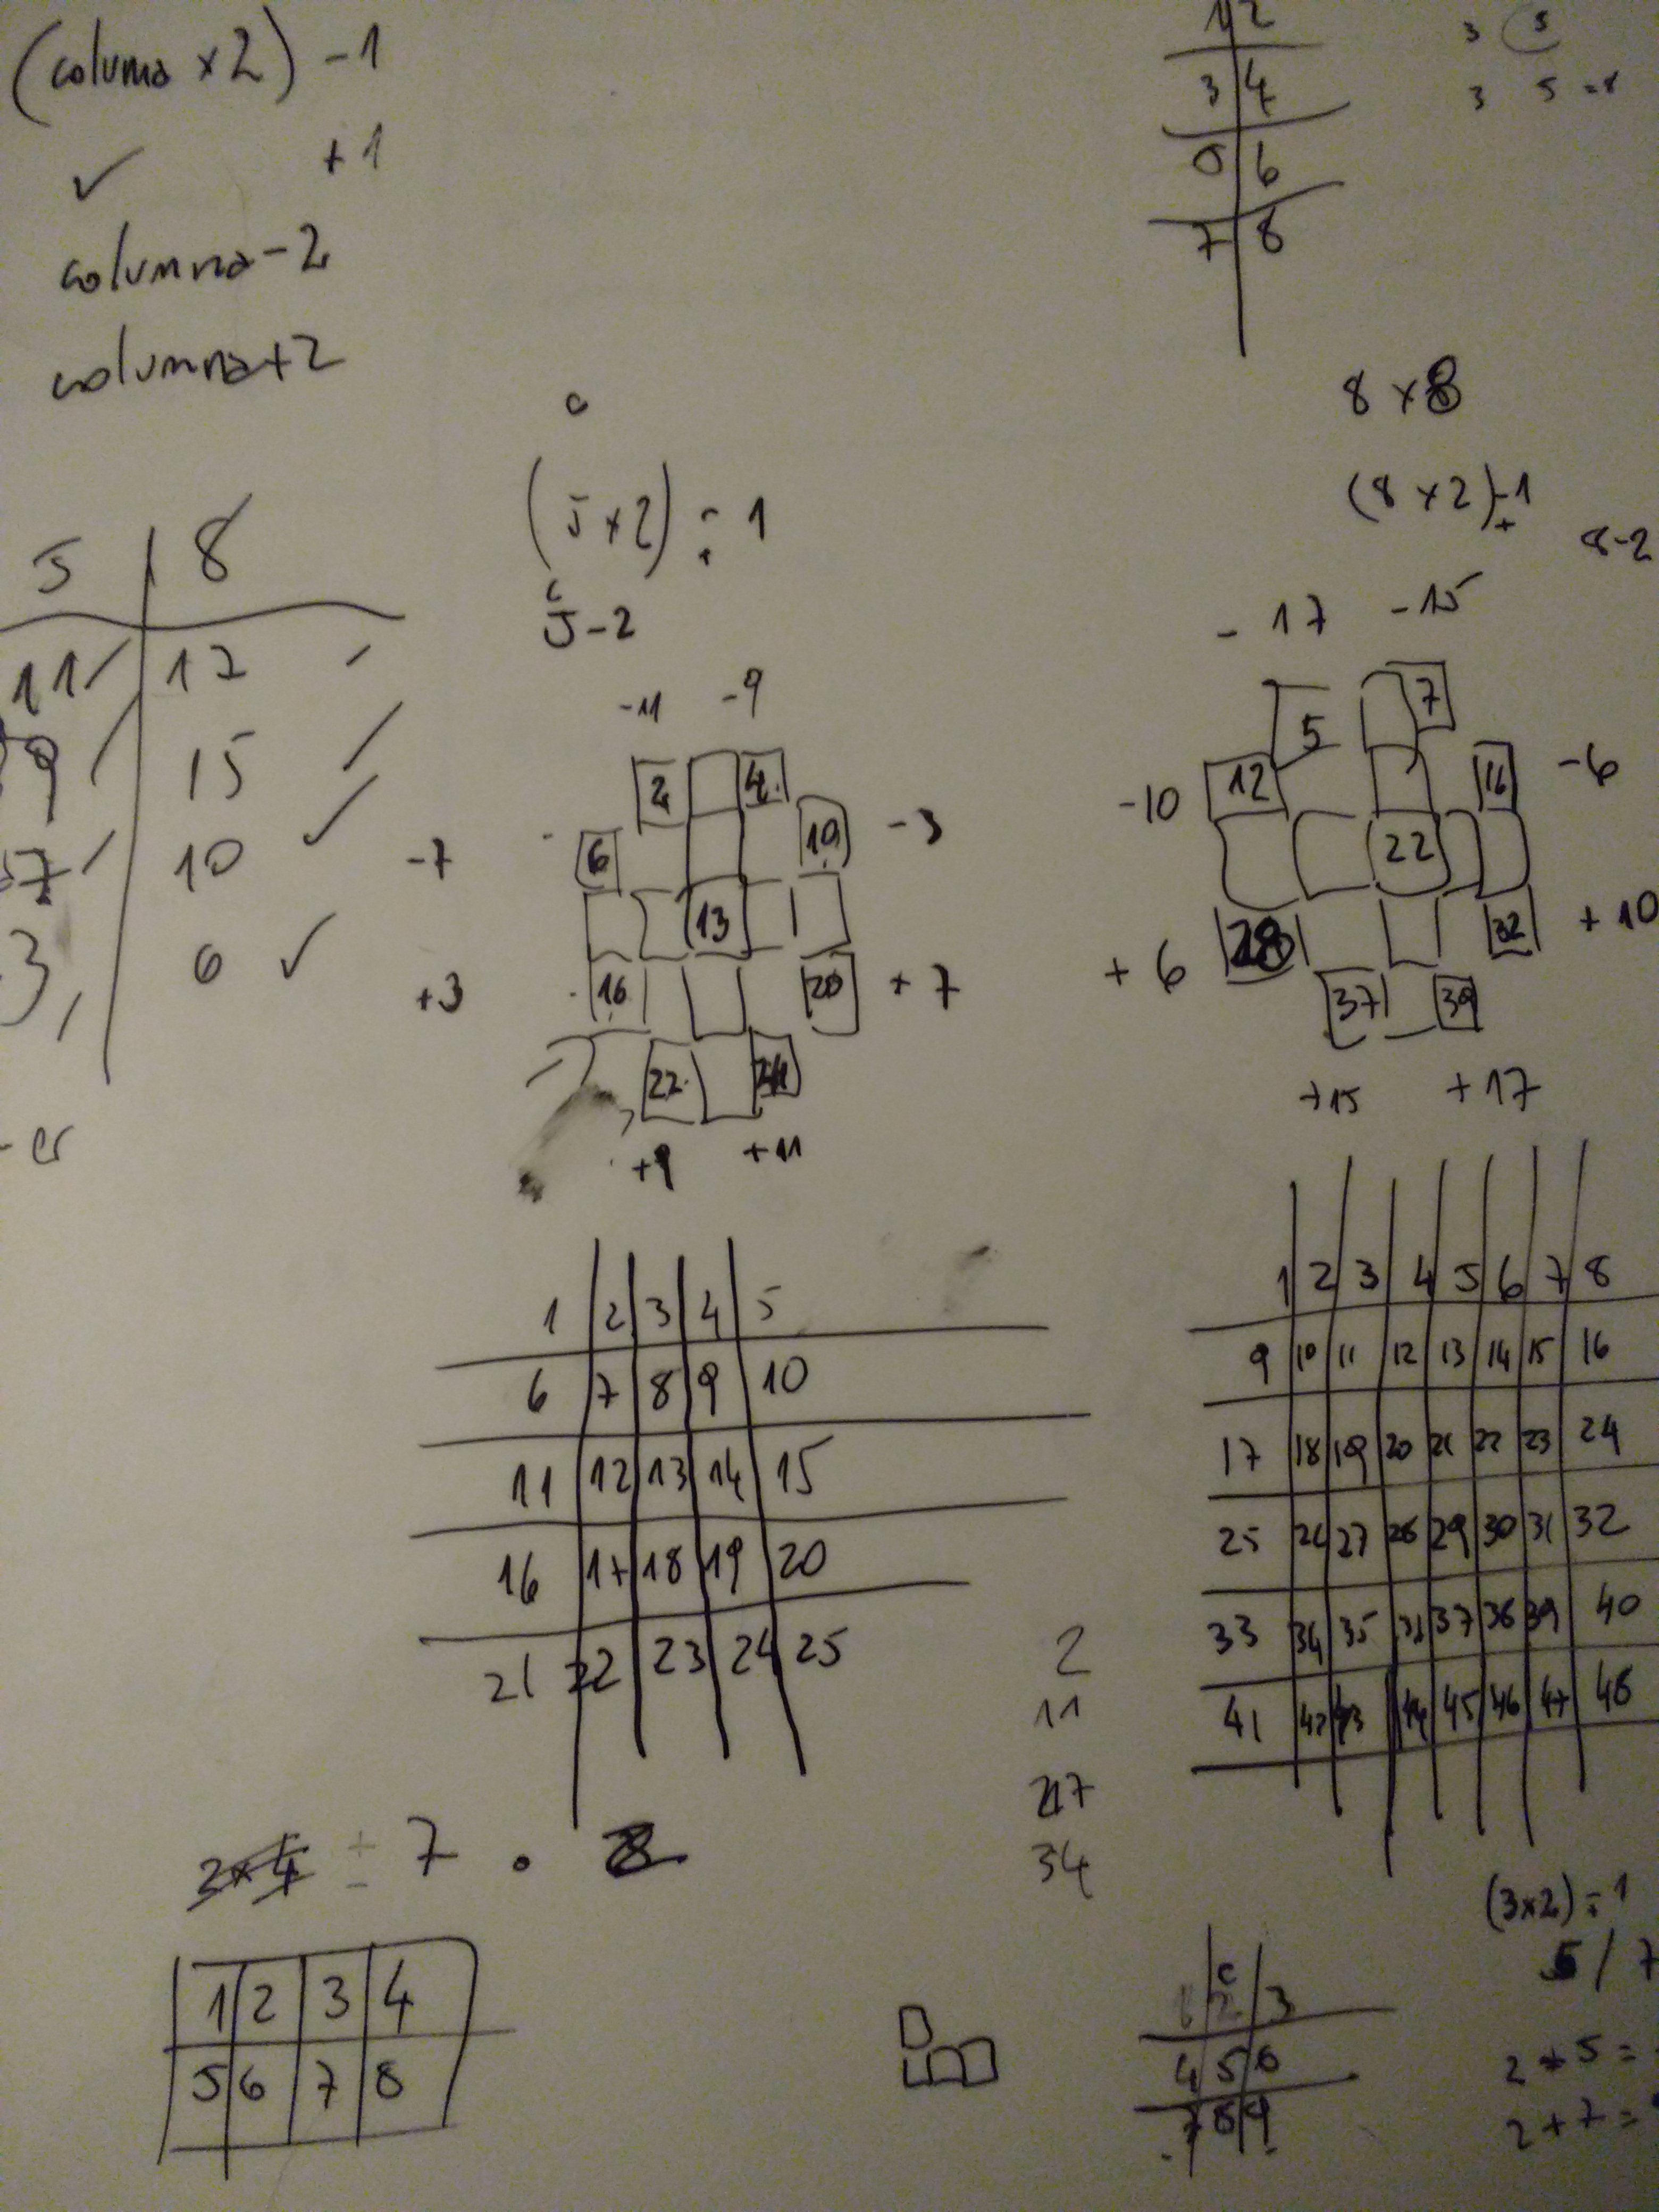 (columa x2) -1
+1
✓
columna-2
columna+2
12
34
56
78
3 5
3 5 =8
8 x 8
(8 x 2) -1
+
8-2
5 8
11 17
9 15
7 10
3 6
c
(5 x2) - 1
+
c
5-2
-11 -9
2 4
-7 6 10 -3
13
+3 16 20 +7
22 24
+9 +11
-17 -15
5 7
-10 12 16 -6
22
+6 28 32 +10
37 39
+15 +17
1 2 3 4 5
6 7 8 9 10
11 12 13 14 15
16 17 18 19 20
21 22 23 24 25
1 2 3 4 5 6 7 8
9 10 11 12 13 14 15 16
17 18 19 20 21 22 23 24
25 26 27 28 29 30 31 32
33 34 35 36 37 38 39 40
41 42 43 44 45 46 47 48
2
11
27
34
2x4 ± 7 . 2
1 2 3 4
5 6 7 8
c
1 2 3
4 5 6
7 8 9
(3x2) - 1
+
5 / 7
2 + 5 =
2 + 7 =